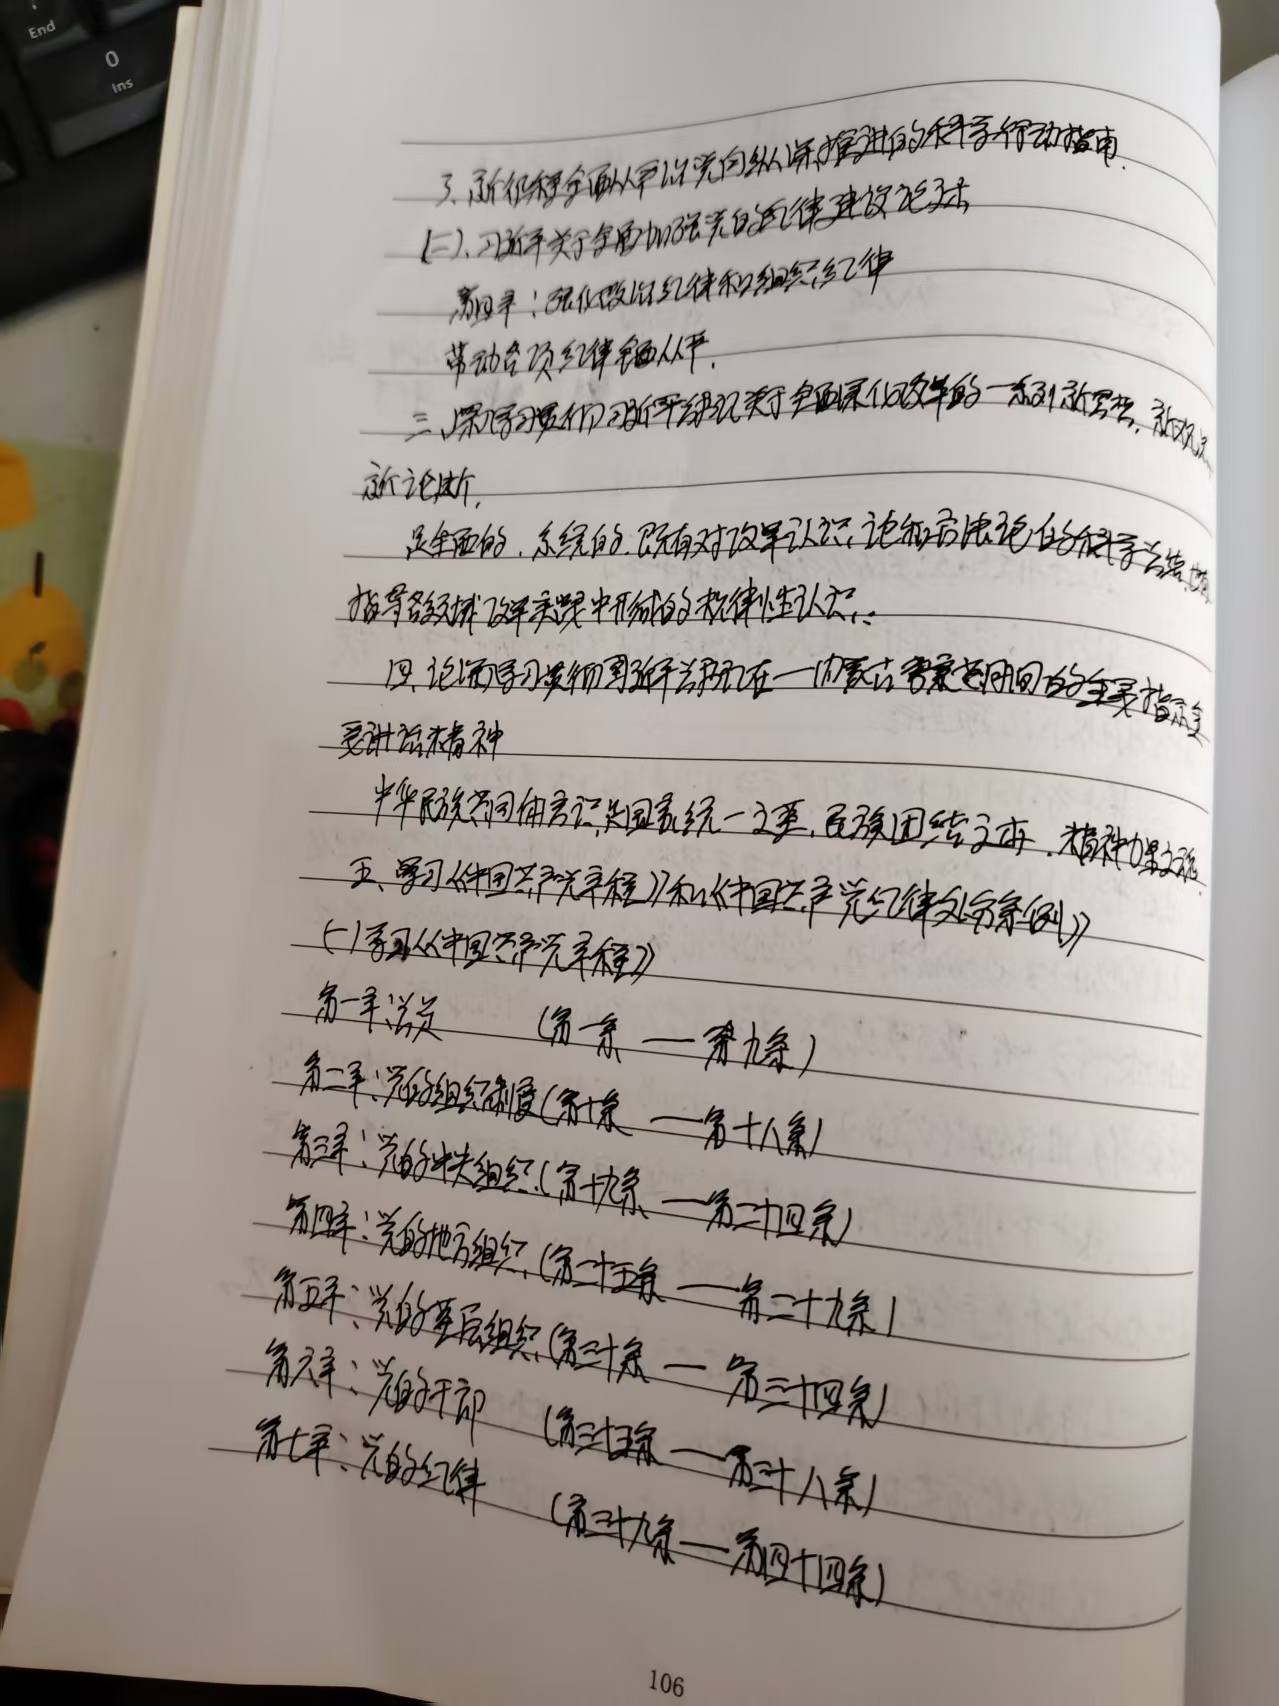 End
0
Ins
3、新征程全面从严治党向纵深推进的科学行动指南.
(二)、习近平关于全面加强党的纪律建设论述
第四章：强化政治纪律和组织纪律
带动各项纪律全面从严.
三、深入学习贯彻习近平总书记关于全面深化改革的一系列新思想，新观点
新论断，
是全面的、系统的、既有对改革认识论和方法论的科学总结，
指导各领域改革实践中形成的规律性认识.
四、学习贯彻习近平总书记在内蒙古考察期间的重要指示
要讲话精神
中华民族共同体意识是国家统一之基、民族团结之本、精神力量之魂
五、学习《中国共产党章程》和《中国共产党纪律处分条例》
(一)学习《中国共产党章程》
第一章：党员 (第一条 —— 第九条)
第二章：党的组织制度(第十条 —— 第十八条)
第三章：党的中央组织(第十九条 —— 第二十四条)
第四章：党的地方组织(第二十五条 —— 第二十九条)
第五章：党的基层组织(第三十条 —— 第三十四条)
第六章：党的干部 (第三十五条 —— 第三十八条)
第七章：党的纪律 (第三十九条 —— 第四十四条)
106